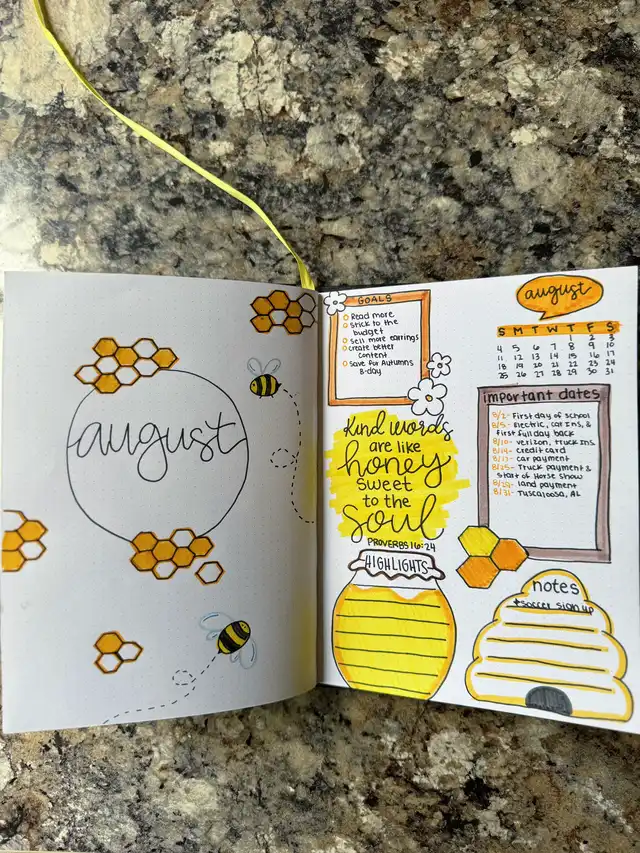 august
GOALS
Read more
Stick to the
budget
Sell more earrings
Create better
content
Save for Autumns
B-day
august
S M T W T F S
1 2 3
4 5 6 7 8 9 10
11 12 13 14 15 16 17
18 19 20 21 22 23 24
25 26 27 28 29 30 31
Kind words
are like
honey
Sweet
to the
Soul
PROVERBS 16:24
important dates
8/2- First day of school
8/5- Electric, car ins, &
first full day back
8/10- verizon, truck ins.
8/14- credit card
8/17- car payment
8/25- Truck payment &
start of Horse Show
8/29- land payment
8/31- Tuscaloosa, AL
HIGHLIGHTS
notes
+soccer sign up